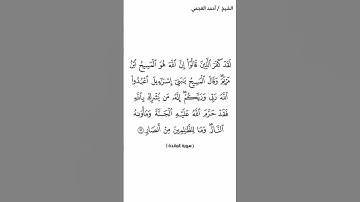 الشيخ / أحمد العجمي
لَقَدْ كَفَرَ ٱلَّذِينَ قَالُوٓا۟ إِنَّ ٱللَّهَ هُوَ ٱلْمَسِيحُ ٱبْنُ
مَرْيَمَ ۖ وَقَالَ ٱلْمَسِيحُ يَٰبَنِىٓ إِسْرَٰٓءِيلَ ٱعْبُدُوا۟
ٱللَّهَ رَبِّى وَرَبَّكُمْ ۖ إِنَّهُۥ مَن يُشْرِكْ بِٱللَّهِ
فَقَدْ حَرَّمَ ٱللَّهُ عَلَيْهِ ٱلْجَنَّةَ وَمَأْوَىٰهُ
ٱلنَّارُ ۖ وَمَا لِلظَّٰلِمِينَ مِنْ أَنصَارٍ ٧٢
( سورة المائدة )